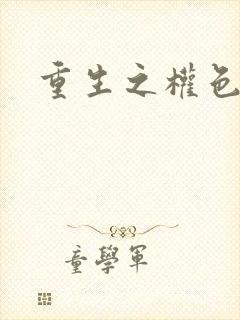 重生之權色
童學軍